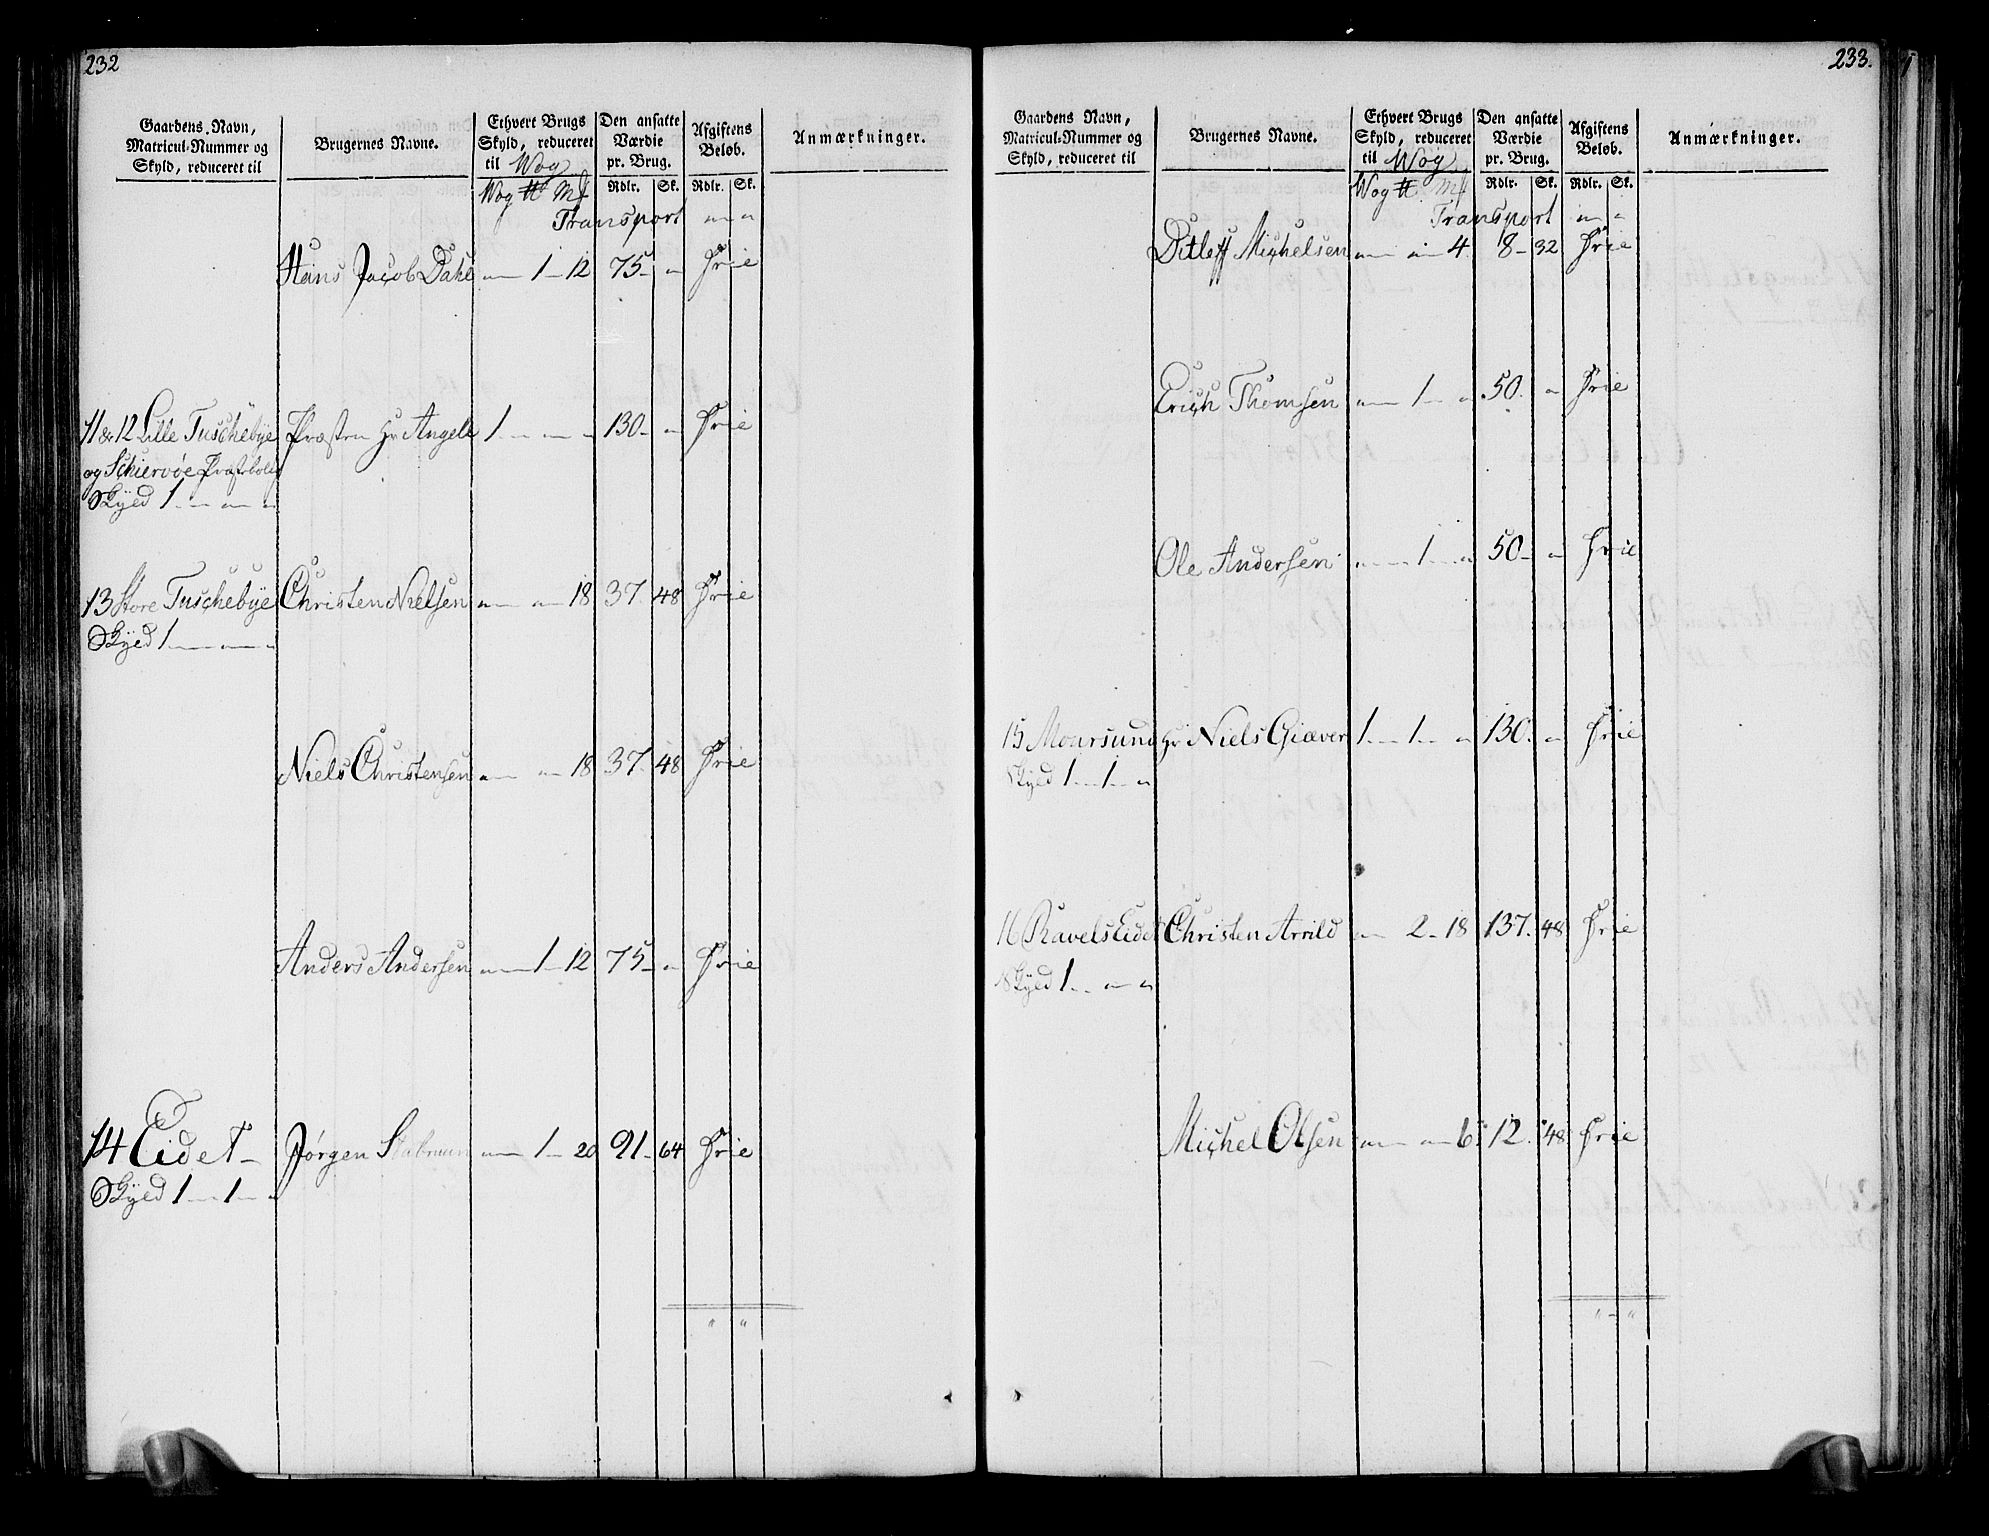 232
Gaardens Navn,
Matricul-Nummer og
Skyld, reduceret til
Brugernes Navne.
Ethvert Brugs
Skyld, reduceret
til Wog
Wog ℔ Mk
Den ansatte
Værdie
pr. Brug.
Rdlr. Sk.
Afgiftens
Beløb.
Rdlr. Sk.
Anmærkninger.
Transport " — "
Hans Jacob Dahl " — 1 — 12 75 — " Frie
11 & 12 Lille Tuschebye Præsten Hr Angell 1 — " — " 130 — " Frie
og Schiervøe Præstebolig
Skyld 1 — " — "
13 Store Tuschebye Christen Nielsen " — " — 18 37. 48 Frie
Skyld 1 — " — "
Niels Christensen " — " — 18 37. 48 Frie
Anders Andersen " — 1 — 12 75 — " Frie
14 Eidet — Jørgen " — 1 — 20 91 — 64 Frie
Skyld 1 — 1 — "
" "
233.
Gaardens Navn,
Matricul-Nummer og
Skyld, reduceret til
Brugernes Navne.
Ethvert Brugs
Skyld, reduceret
til Wog
Wog ℔ Mk
Den ansatte
Værdie
pr. Brug.
Rdlr. Sk.
Afgiftens
Beløb.
Rdlr. Sk.
Anmærkninger.
Transport " — "
Ditleff Michelsen " — " — 4. 8 — 32 Frie
Erich Thomsen " — 1 — " 50. — " Frie
Ole Andersen " — 1 — " 50 — " Frie
15 Moursund Hr Niels Giæver 1 — 1 — " 130. — " Frie
Skyld 1 — 1 — "
16 RavelsEidet Christen Arrild " — 2 — 18 137. 48 Frie
Skyld 1 — " — "
Michel Olsen " — " — 6 12. 48 Frie
" — "